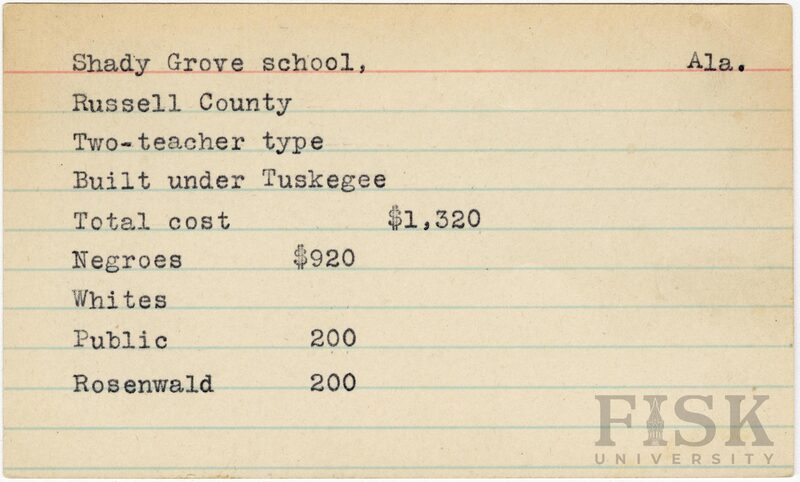 Shady Grove school, Ala.
Russell County
Two-teacher type
Built under Tuskegee
Total cost $1,320
Negroes $920
Whites
Public 200
Rosenwald 200
FISK
UNIVERSITY